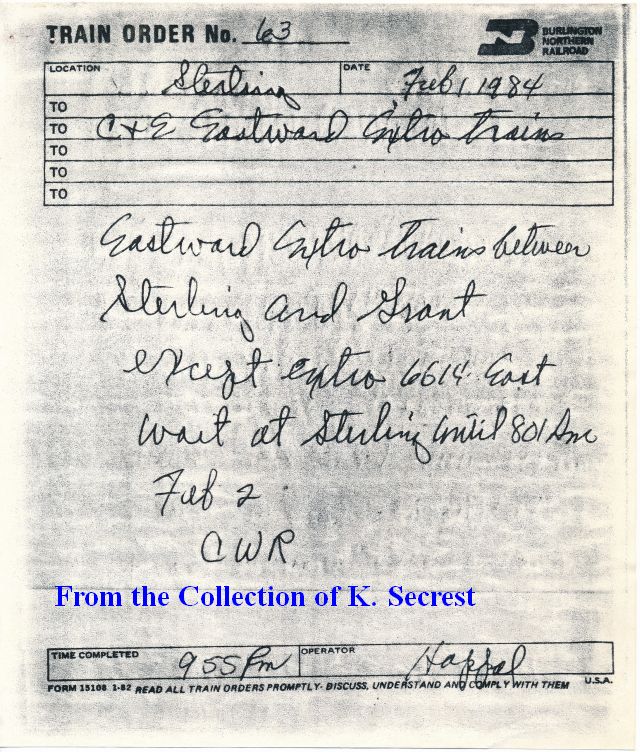 TRAIN ORDER No. 63
BURLINGTON
NORTHERN
RAILROAD
LOCATION Sterling DATE Feb 1, 1984
TO
TO C+E Eastward Extra trains
TO
TO
TO
Eastward Extra trains between
Sterling and Grant
except extra 6614 East
wait at Sterling until 801 Am
Feb 2
CWR
From the Collection of K. Secrest
TIME COMPLETED 955 Pm OPERATOR
FORM 15108 1-82 READ ALL TRAIN ORDERS PROMPTLY- DISCUSS, UNDERSTAND AND COMPLY WITH THEM U.S.A.